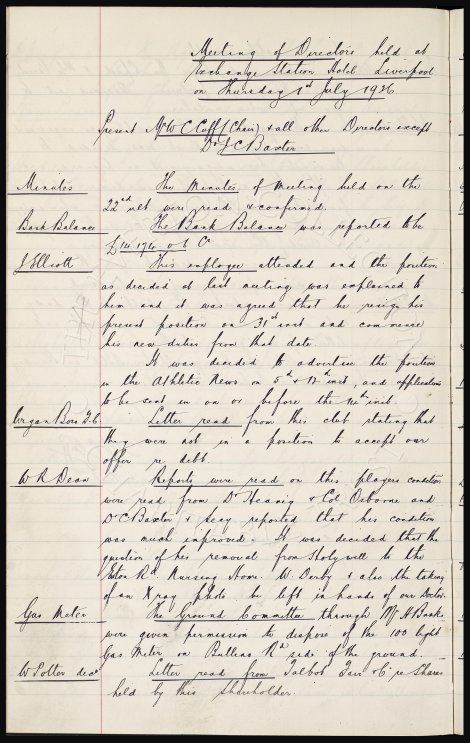 Meeting of Directors held at
Exchange Station Hotel Liverpool
on Thursday 1st July 1926
Present Mr W C Cuff (Chair) & all other Directors except
Dr J C Baxter
Minutes The Minutes of Meeting held on the
22nd ult were read & confirmed.
Bank Balance The Bank Balance was reported to be
£14,174 0 1 Cr
J Elliott This employee attended and the position
as decided at last meeting was explained to
him and it was agreed that he resign his
present position on 31st inst and commence
his new duties from that date.
It was decided to advertise the position
in the Athletic News on 5th & 12th inst, and applications
to be sent in on or before the
Wigan Boro F.C. Letter read from this club stating that
they were not in a position to accept our
offer re debt.
W R Dean Reports were read on this players condition
were read from Dr & Col Osborne and
Dr C Baxter & Secy reported that his condition
was much improved. It was decided that the
question of his removal from Holywell to the
Rd Nursing Home. W. Derby & also the taking
of an X ray photo be left in hands of our Doctor.
Gas Meter The Ground Committee through Mr H Banks
were given permission to dispose of the 100 light
Gas Meter on Bullens Rd side of the ground.
W decd Letter read from Talbot & Co re Shares
held by this shareholder.